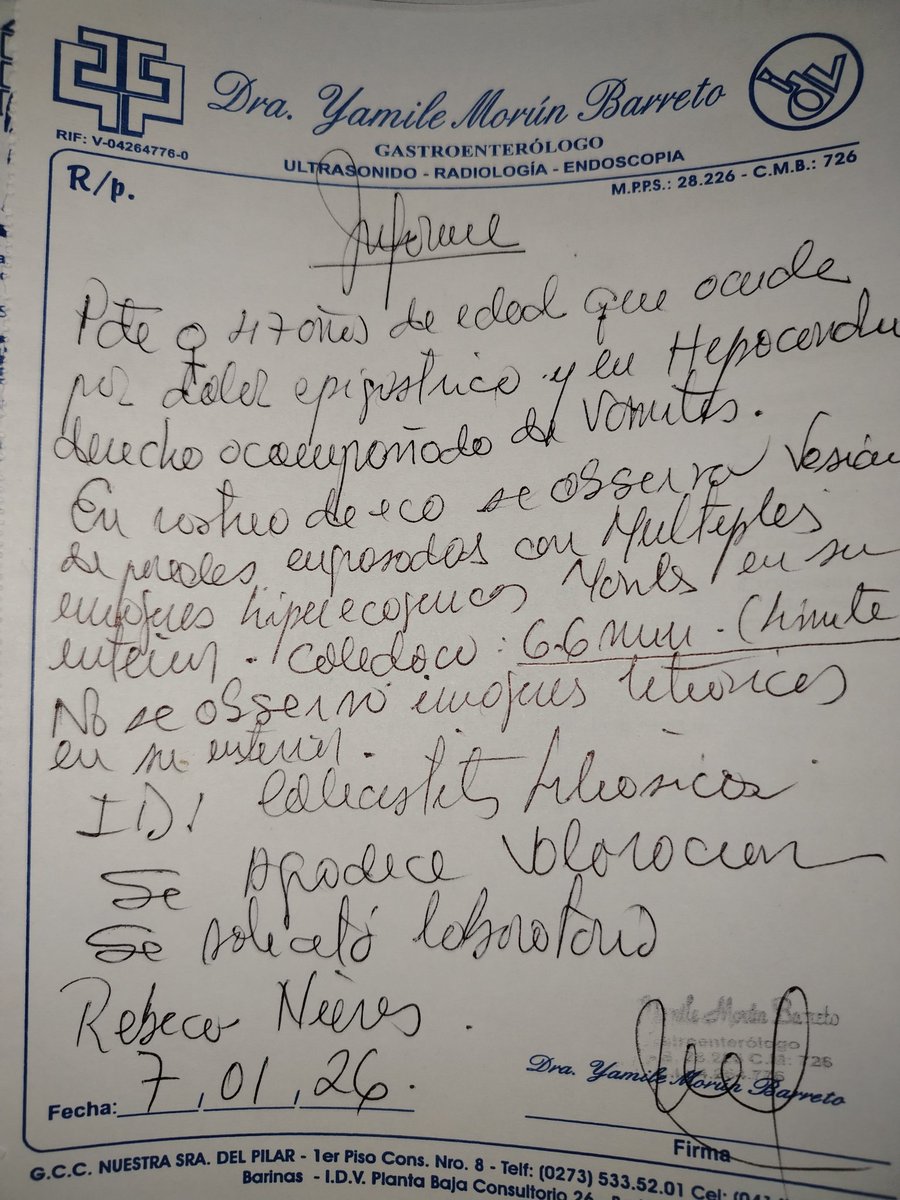 Dra. Yamile Morún Barreto
GASTROENTERÓLOGO
ULTRASONIDO - RADIOLOGÍA - ENDOSCOPIA
RIF: V-04264776-0
M.P.P.S.: 28.226 - C.M.B.: 726
IDV
R/p.
Informe
Pcte ♀ 47 años de edad que acude
por dolor epigastrico y en Hepocondu
derecho acompañado de Vomitos.
En rastreo de eco se observa Vesicu
de paredes engrosadas con Multiples
imagenes hiperecogenicas en su
interior. Coledoco: 6.6 mm. (limite
No se observo imagenes litiasicas
en su interior.
ID/ Colecistitis Litiasica
Se Agradece Valoracion
Se solicitó laboratorio
Rebeca Nieves.
Fecha: 7, 01, 26.
Yamile Morún Barreto
Gastroenterólogo
Dra. Yamile Morún Barreto
Firma
G.C.C. NUESTRA SRA. DEL PILAR - 1er Piso Cons. Nro. 8 - Telf: (0273) 533.52.01 Cel:
Barinas - I.D.V. Planta Baja Consultorio 26